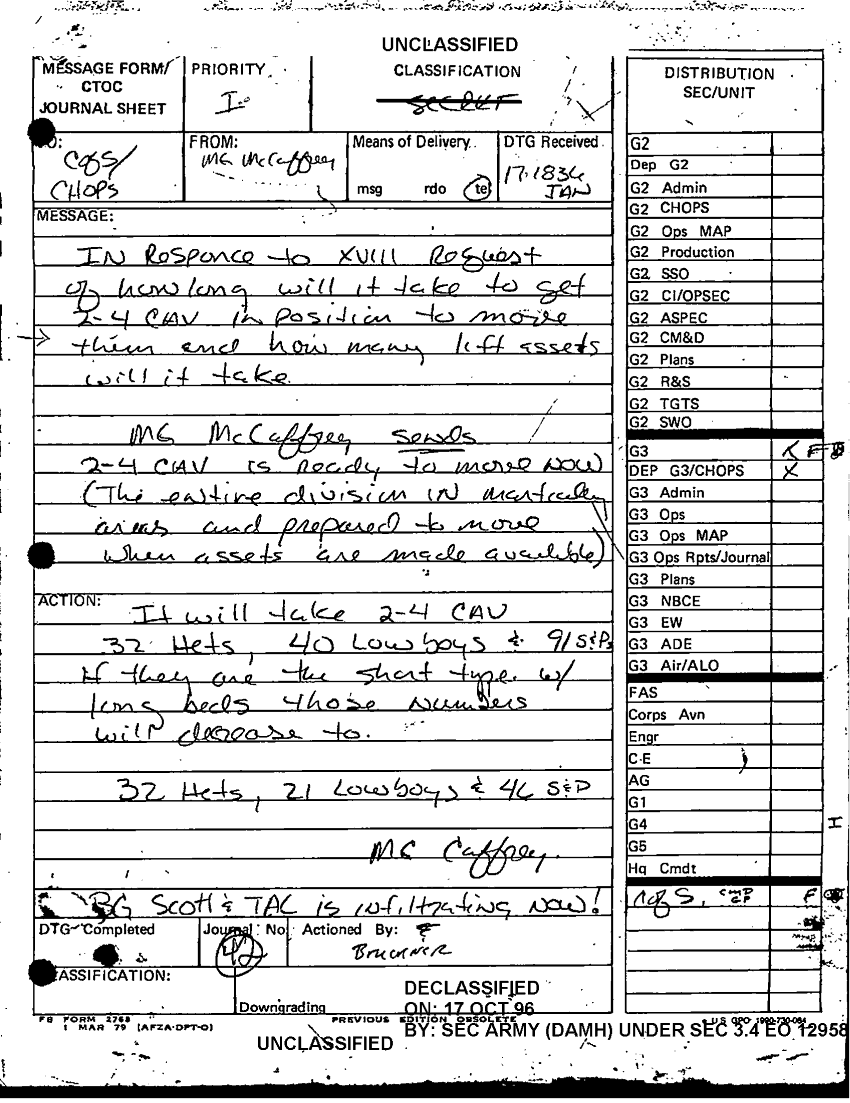 UNCLASSIFIED
MESSAGE FORM/
CTOC
JOURNAL SHEET
PRIORITY
I
CLASSIFICATION
SECRET
TO:
CofS/
CHOPS
FROM:
MG McCaffrey
Means of Delivery
msg rdo tel
DTG Received
17.1834
JAN
MESSAGE:
IN Responce to XVIII Request
of how long will it take to get
2-4 CAV in position to move
them and how many lift assets
will it take.
MG McCaffrey sends
2-4 CAV is ready to move NOW
(The entire division IN
areas and prepared to move
when assets are made available)
ACTION:
It will take 2-4 CAV
32 Hets, 40 Lowboys & 91 S&Ps
If they are the short type. w/
long beds those numbers
will decrease to.
32 Hets, 21 Lowboys & 46 S&P
MC Caffrey.
BG Scott & TAC is infiltrating NOW!
DTG Completed
Journal No
42
Actioned By:
Bruckner
CLASSIFICATION:
Downgrading
DECLASSIFIED
ON: 17 OCT 96
BY: SEC ARMY (DAMH) UNDER SEC 3.4 EO 12958
FB FORM 2768
1 MAR 79 (AFZA-DPT-O)
PREVIOUS EDITION OBSOLETE
UNCLASSIFIED
DISTRIBUTION
SEC/UNIT
G2
Dep G2
G2 Admin
G2 CHOPS
G2 Ops MAP
G2 Production
G2 SSO
G2 CI/OPSEC
G2 ASPEC
G2 CM&D
G2 Plans
G2 R&S
G2 TGTS
G2 SWO
G3 X F
DEP G3/CHOPS X
G3 Admin
G3 Ops
G3 Ops MAP
G3 Ops Rpts/Journal
G3 Plans
G3 NBCE
G3 EW
G3 ADE
G3 Air/ALO
FAS
Corps Avn
Engr
C-E
AG
G1
G4
G5
Hq Cmdt
CofS, CMD GP F